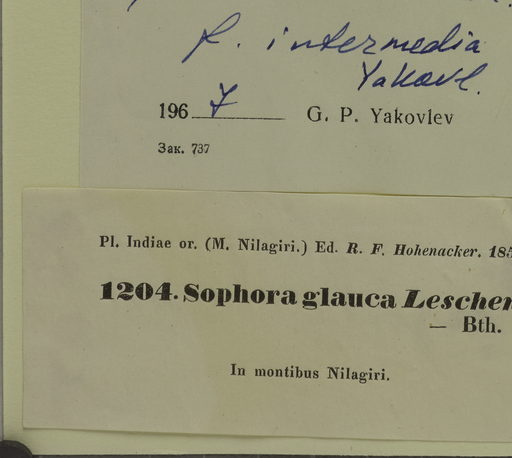 f. intermedia
Yakovl.
1967 G. P. Yakovlev
Зак. 737
Pl. Indiae or. (M. Nilagiri.) Ed. R. F. Hohenacker. 185
1204. Sophora glauca Leschen
— Bth.
In montibus Nilagiri.